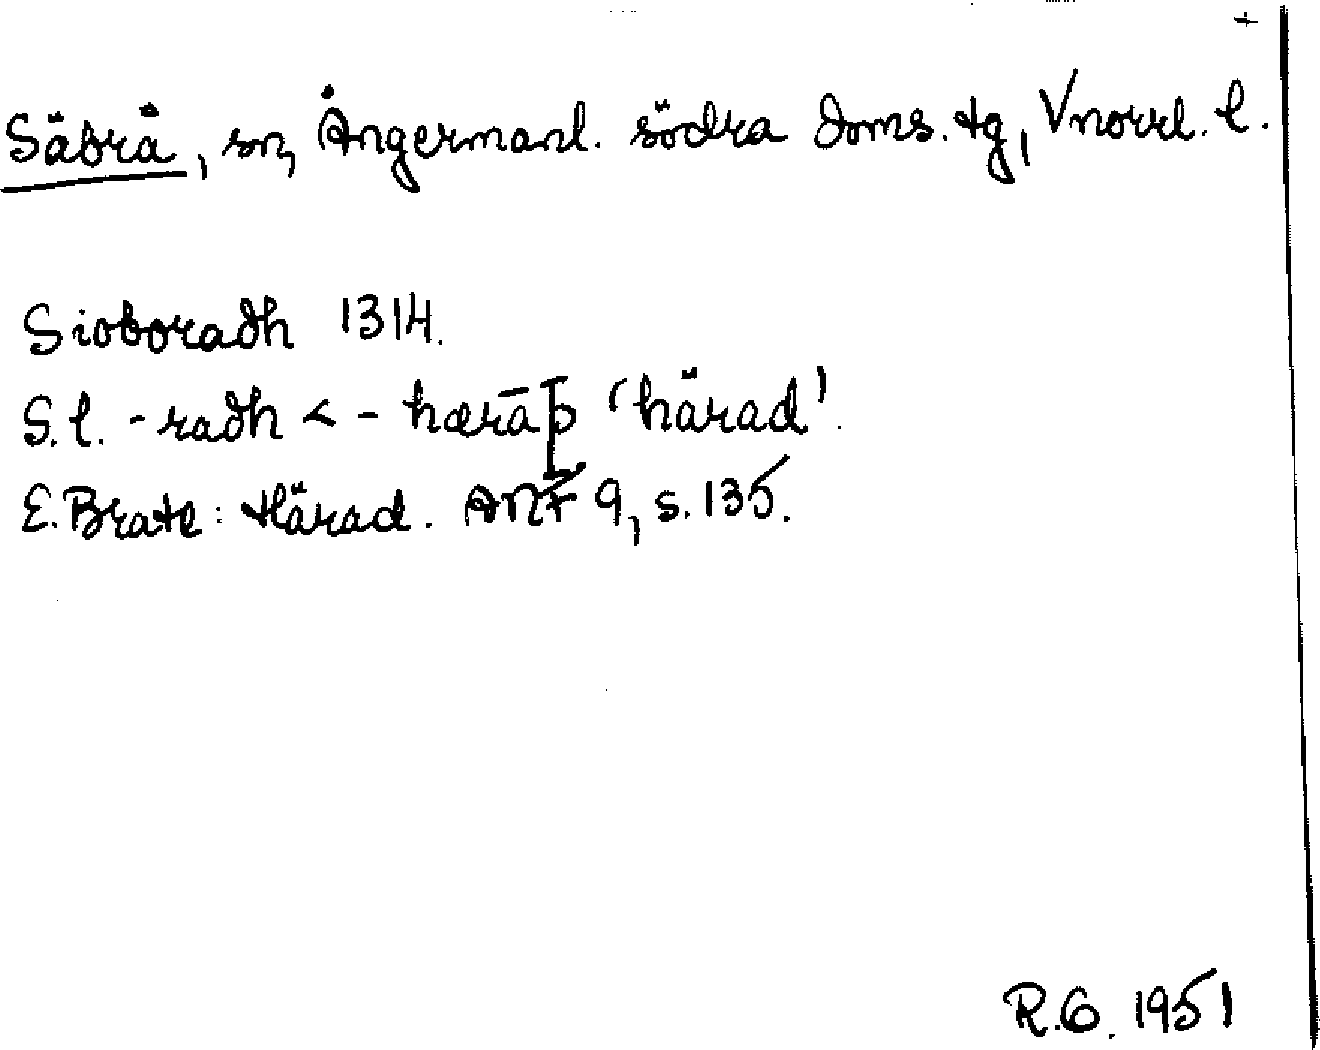 +
Säbrå, sn, Ångermanl. södra doms. tg, Vnorrl. l.
Sioboradh 1314.
S.l. -radh < - hærāþ 'härad'.
E. Brate: Härad. ANF 9, s. 135.
R.G. 1951